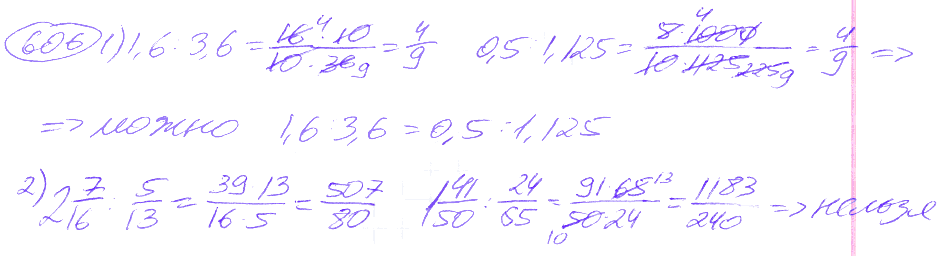 606 1) 1,6 : 3,6 = 16⁴ · 10 / 10 · 36 9 = 4/9 0,5 : 1,125 = 5 · 1000 4 / 10 · 1125 225 9 = 4/9 =>
=> можно 1,6 : 3,6 = 0,5 : 1,125
2) 2 7/16 : 5/13 = 39 · 13 / 16 · 5 = 507/80 1 41/50 : 24/65 = 91 · 65 13 / 50 10 · 24 = 1183/240 => нельзя